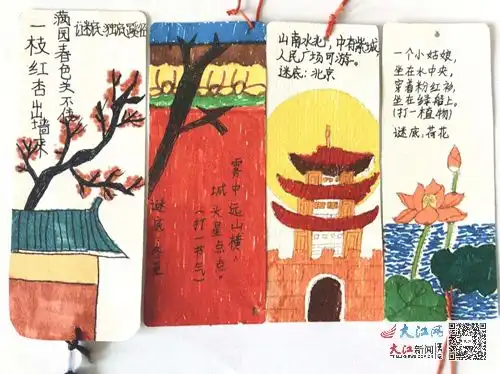 满园春色关不住
一枝红杏出墙来
谜底:
雾中远山横,
城头星点点。
(打一节气)
谜底:
山南水北,中有紫城
人民广场可游。
谜底:北京
一个小姑娘,
坐在水中央,
穿着粉红衫,
坐在绿船上。
(打一植物)
谜底.荷花
大江网
大江新闻